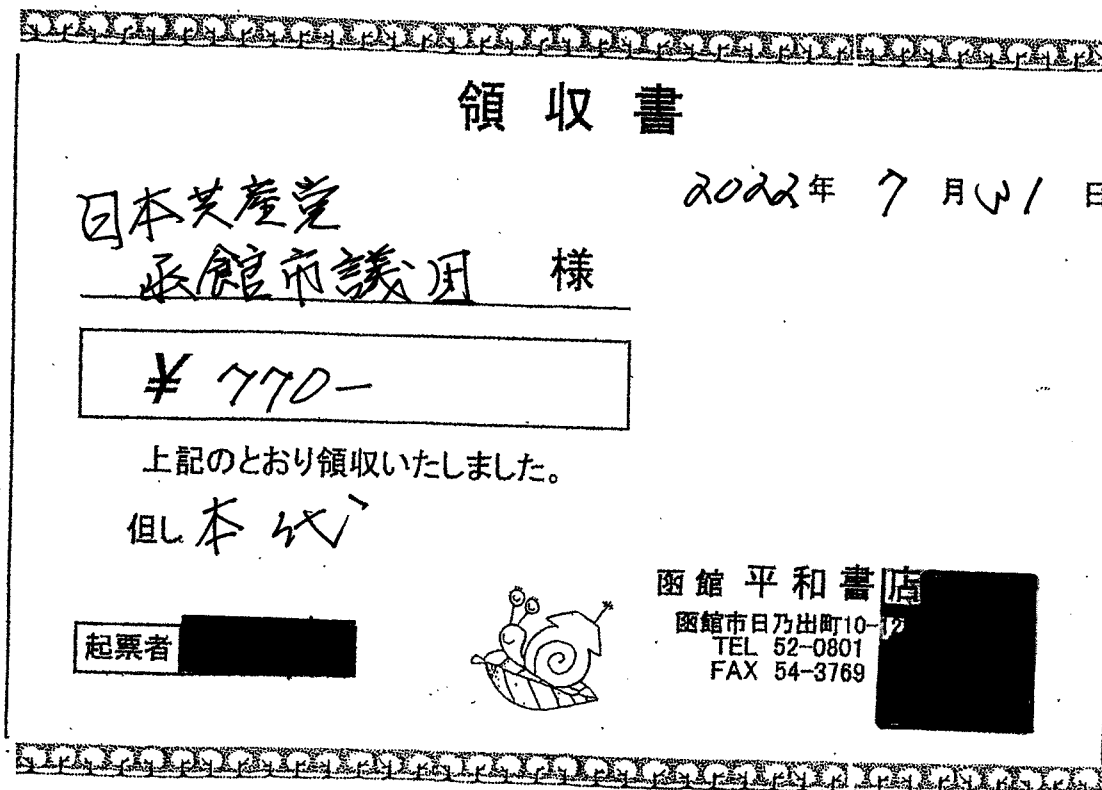 領収書
2022年 7月31日
日本共産党
函館市議団 様
¥ 770-
上記のとおり領収いたしました。
但し 本代
函館 平和書店
函館市日乃出町10-12
TEL 52-0801
FAX 54-3769
起票者